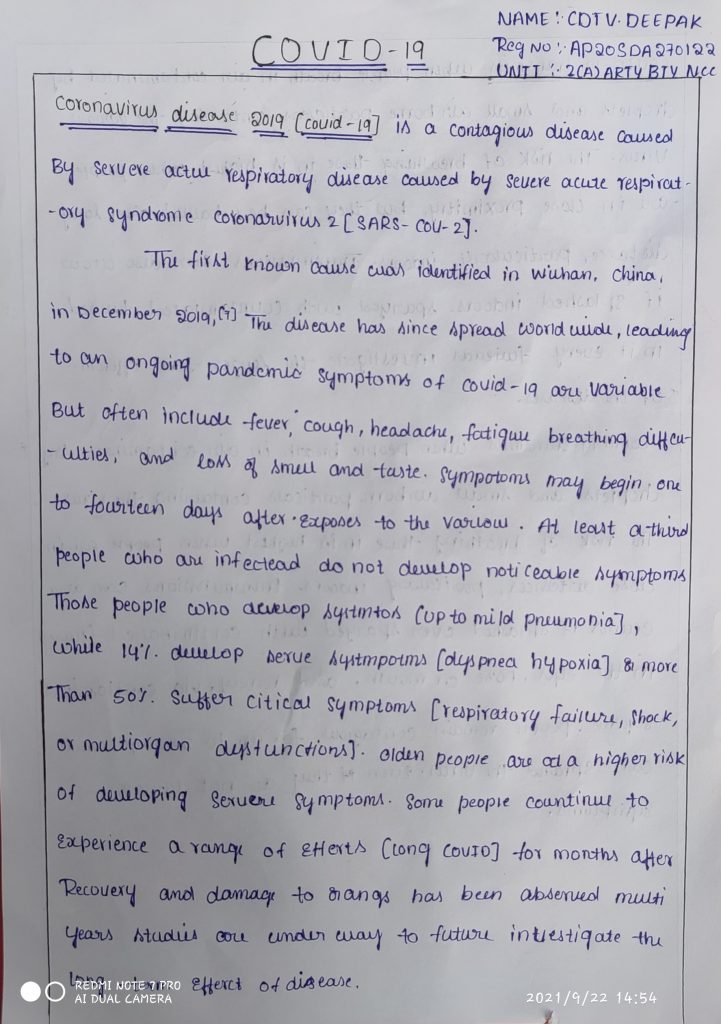 NAME :- CDT V. DEEPAK
COVID-19
Reg No :- AP20SDA270122
UNIT :- 2(A) ARTY BTY NCC
Coronavirus disease 2019 [covid-19] is a contagious disease caused
By servere actue respiratory disease caused by severe acute respirat-
-ory syndrome coronarvirus 2 [SARS-COU-2].
The first known cause was identified in wuhan, china,
in December 2019,[7] The disease has since spread world wide, leading
to an ongoing pandemic symptoms of covid-19 are variable
But often include fever, cough, headache, fatigue breathing diffcu-
-ulties, and loss of smell and taste. sympotoms may begin one
to fourteen days after exposes to the . At least a third
people who are infectead do not develop noticeable symptoms
Those people who develop [up to mild pneumonia],
while 14%. develop serve [dyspnea hypoxia] & more
Than 50%. Suffer citical symptoms [respiratory failure, shock,
or multiorgan dysfunctions]. olden people are at a higher risk
of developing servere symptoms. Some people countinue to
Experience a range of Efferts [long COVID] for months after
Recovery and damage to has been observed multi
years studies are under way to future the
long term Efferct of disease.
REDMI NOTE 7 PRO
AI DUAL CAMERA
2021/9/22 14:54